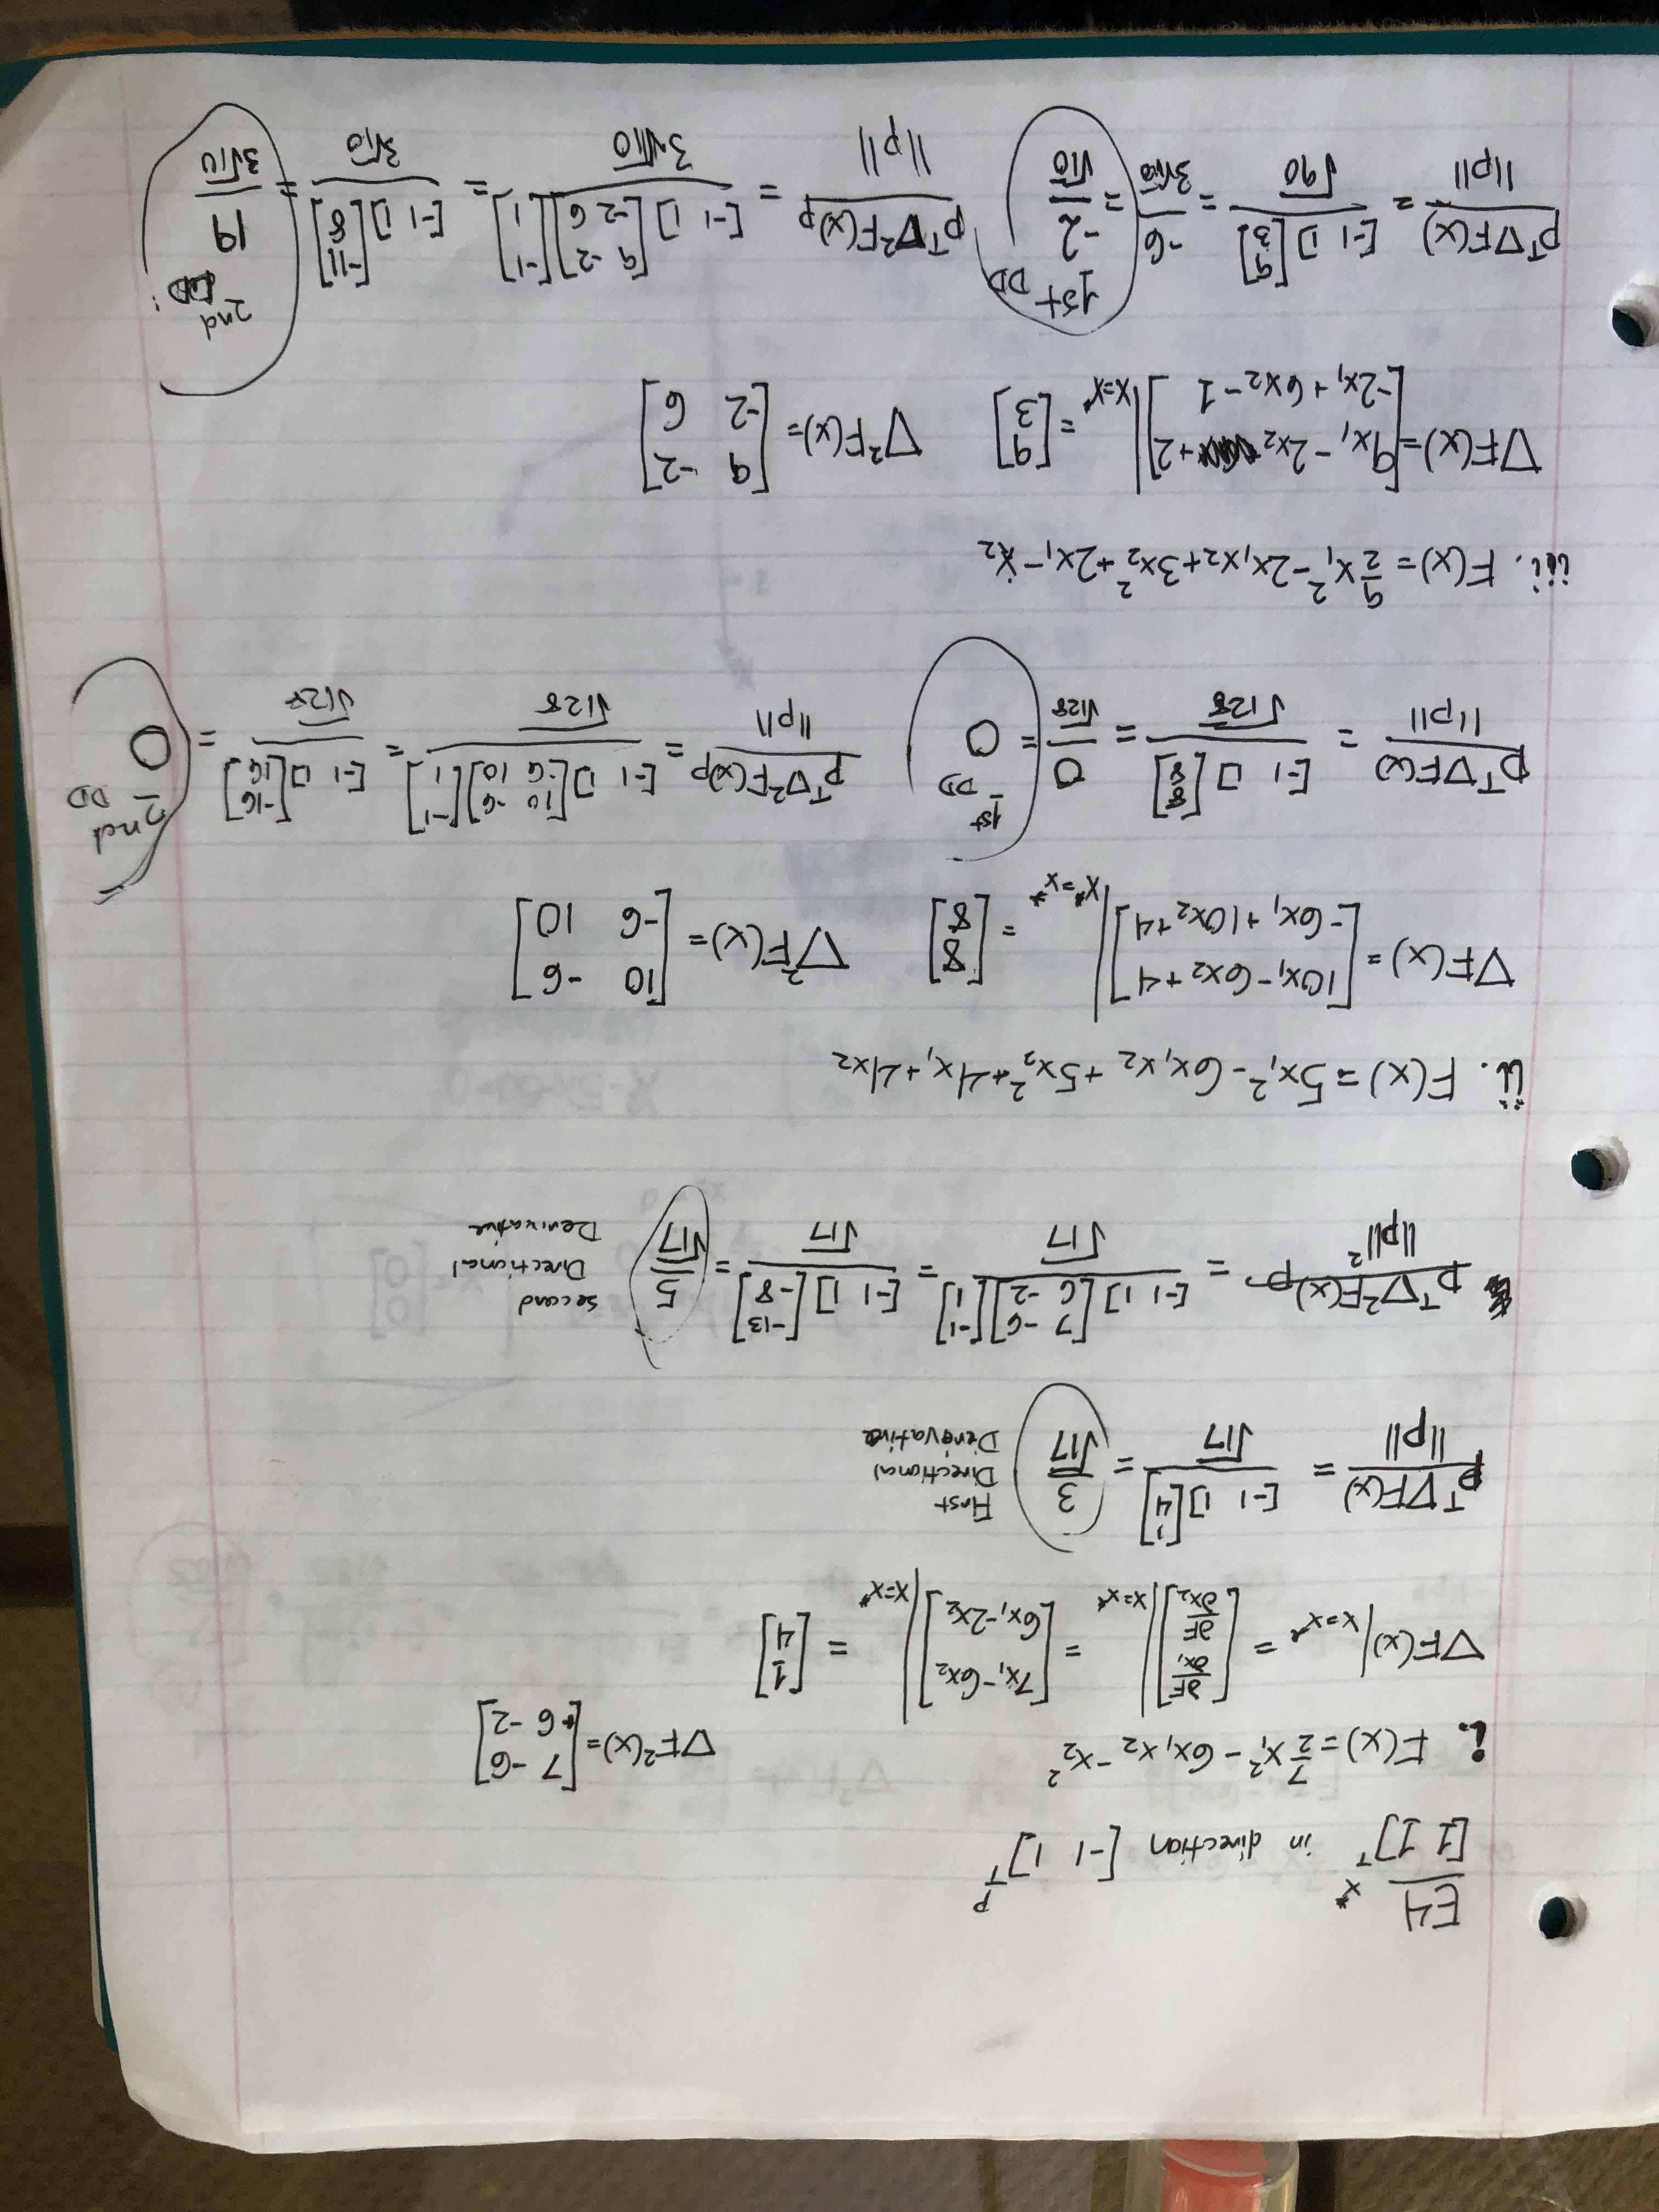 E4
x*
[1 1]ᵀ in direction [-1 1]ᵀ p
i. F(x) = 7/2 x₁² - 6x₁x₂ - x₂² ∇F²(x) = [7 -6; +6 -2]
∇F(x)|x=x* = [∂F/∂x₁; ∂F/∂x₂]|x=x* = [7x₁-6x₂; 6x₁-2x₂]|x=x* = [1; 4]
pᵀ∇F(x)/||p|| = [-1 1][1; 4]/√17 = 3/√17 First Directional Derivative
pᵀ∇²F(x)p/||p||² = [-1 1][7 -6; 6 -2][-1; 1]/√17 = [-1 1][-13; -8]/√17 = 5/√17 second Directional Derivative
ii. F(x) = 5x₁² - 6x₁x₂ + 5x₂² + 4x₁ + 4x₂
∇F(x) = [10x₁-6x₂+4; -6x₁+10x₂+4]|x*=x* = [8; 8] ∇²F(x) = [10 -6; -6 10]
pᵀ∇F(x)/||p|| = [-1 1][8; 8]/√128 = 0/√128 = 0 1st DD pᵀ∇²F(x)p/||p|| = [-1 1][10 -6; -6 10][-1; 1]/√128 = [-1 1][-16; 16]/√128 = 0 2nd DD
iii. F(x) = 9/2 x₁² - 2x₁x₂ + 3x₂² + 2x₁ - x₂
∇F(x) = [9x₁ - 2x₂ + 2; -2x₁ + 6x₂ - 1]|x=x* = [9; 3] ∇²F(x) = [9 -2; -2 6]
pᵀ∇F(x)/||p|| = [-1 1][9; 3]/√90 = -6/3√10 = -2/√10 1st DD pᵀ∇²F(x)p/||p|| = [-1 1][9 -2; -2 6][-1; 1]/3√10 = [-1 1][-11; 8]/3√10 = 19/3√10 2nd DD